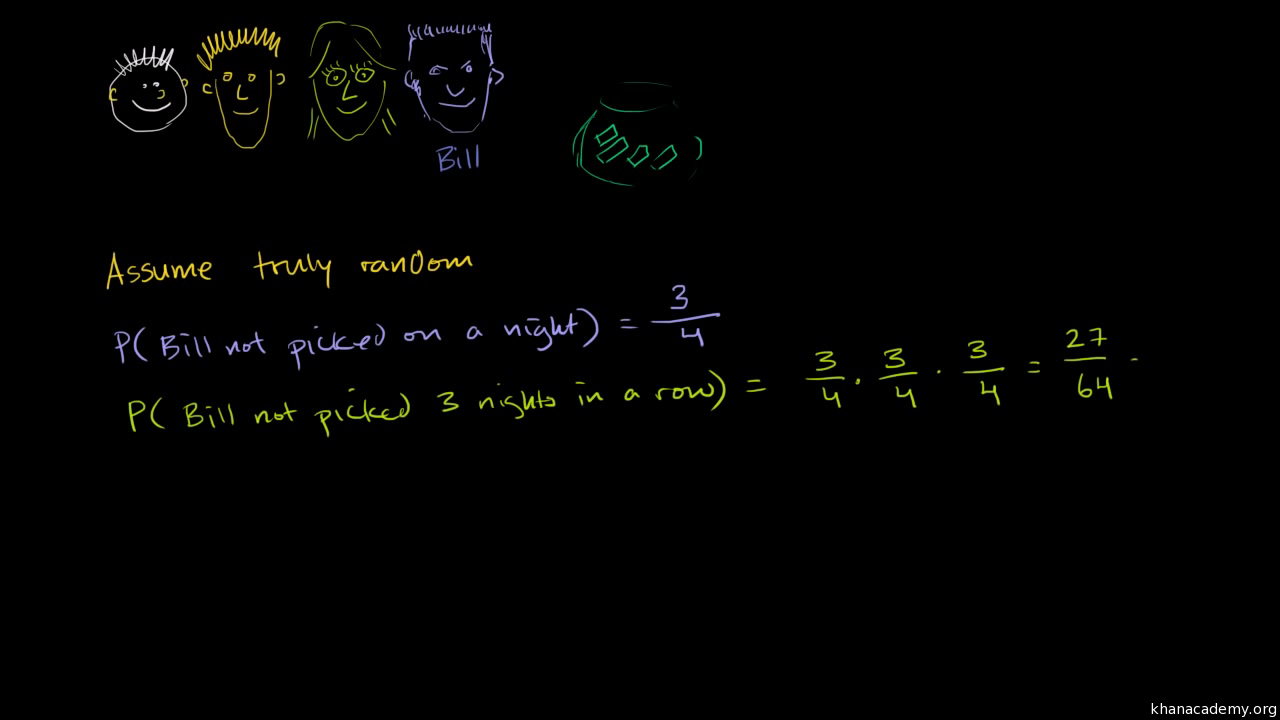 Bill
Assume truly random
P(Bill not picked on a night) = 3/4
P(Bill not picked 3 nights in a row) = 3/4 · 3/4 · 3/4 = 27/64
khanacademy.org